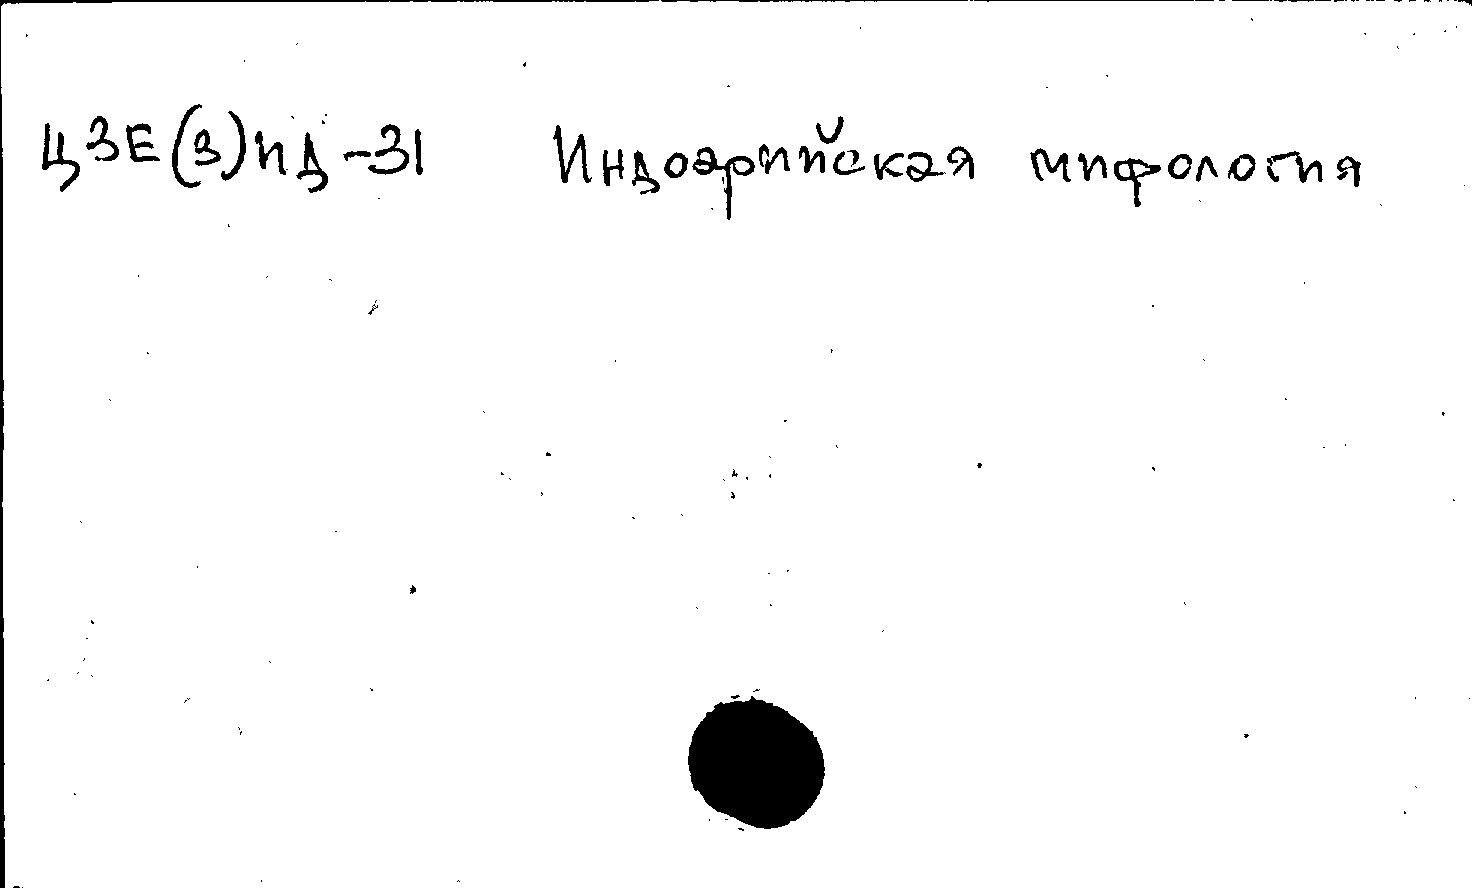 Ц3Е(3)ид-31 Индоарийская мифология